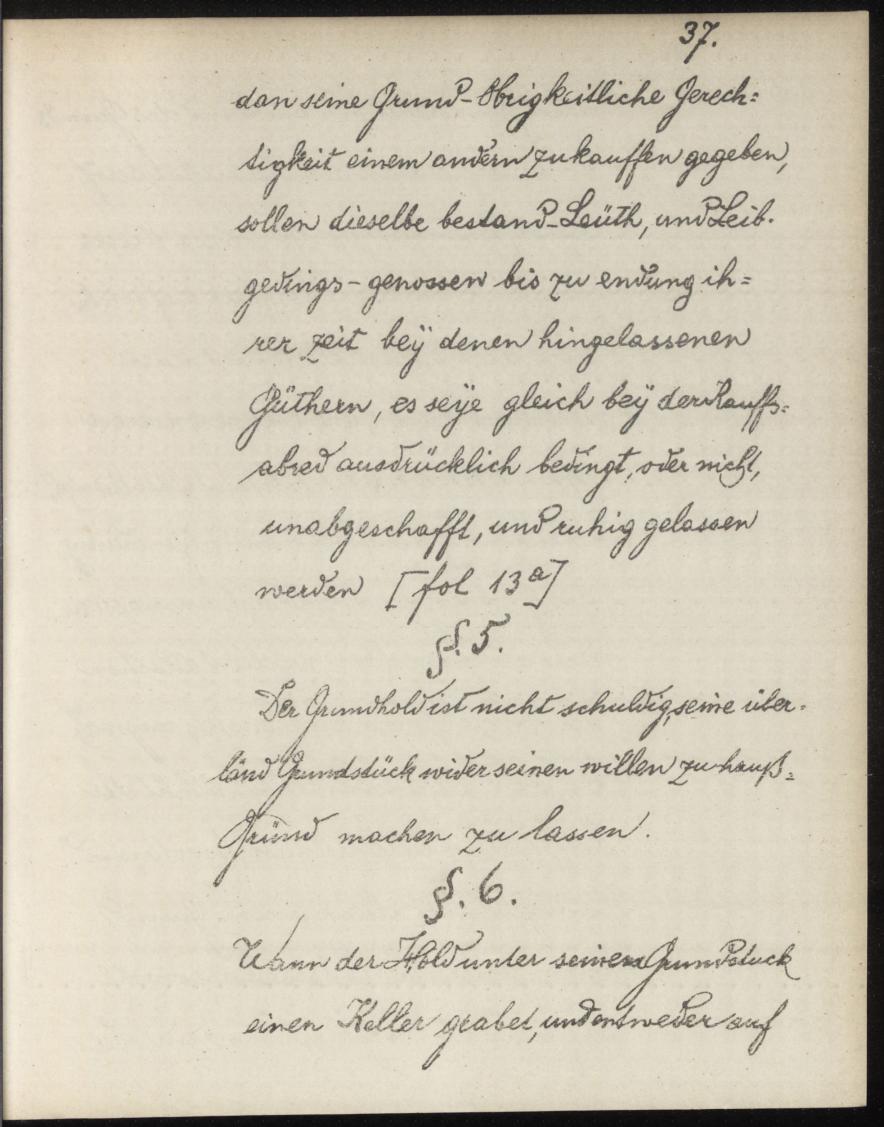 37.
dan seine Grund-Obrigkeitliche Gerech=
tigkeit einem andern zu kauffen gegeben,
sollen dieselbe bestand-Leüth, und Leib-
gedings-genossen bis zu endung ih=
rer zeit beÿ denen hingelassenen
Güthern, es seÿe gleich beÿ der Kauffs=
abred ausdrücklich bedingt, oder nicht,
unabgeschafft, und ruhig gelassen
werden [fol 13a]
§. 5.
Der Grundhold ist nicht schuldig, seine über-
länd Grundstück wider seinen willen zu hauß=
Gründ machen zu lassen.
§. 6.
Wann der Hold unter seinen Grundstuck
einen Keller grabet, und entweder auf